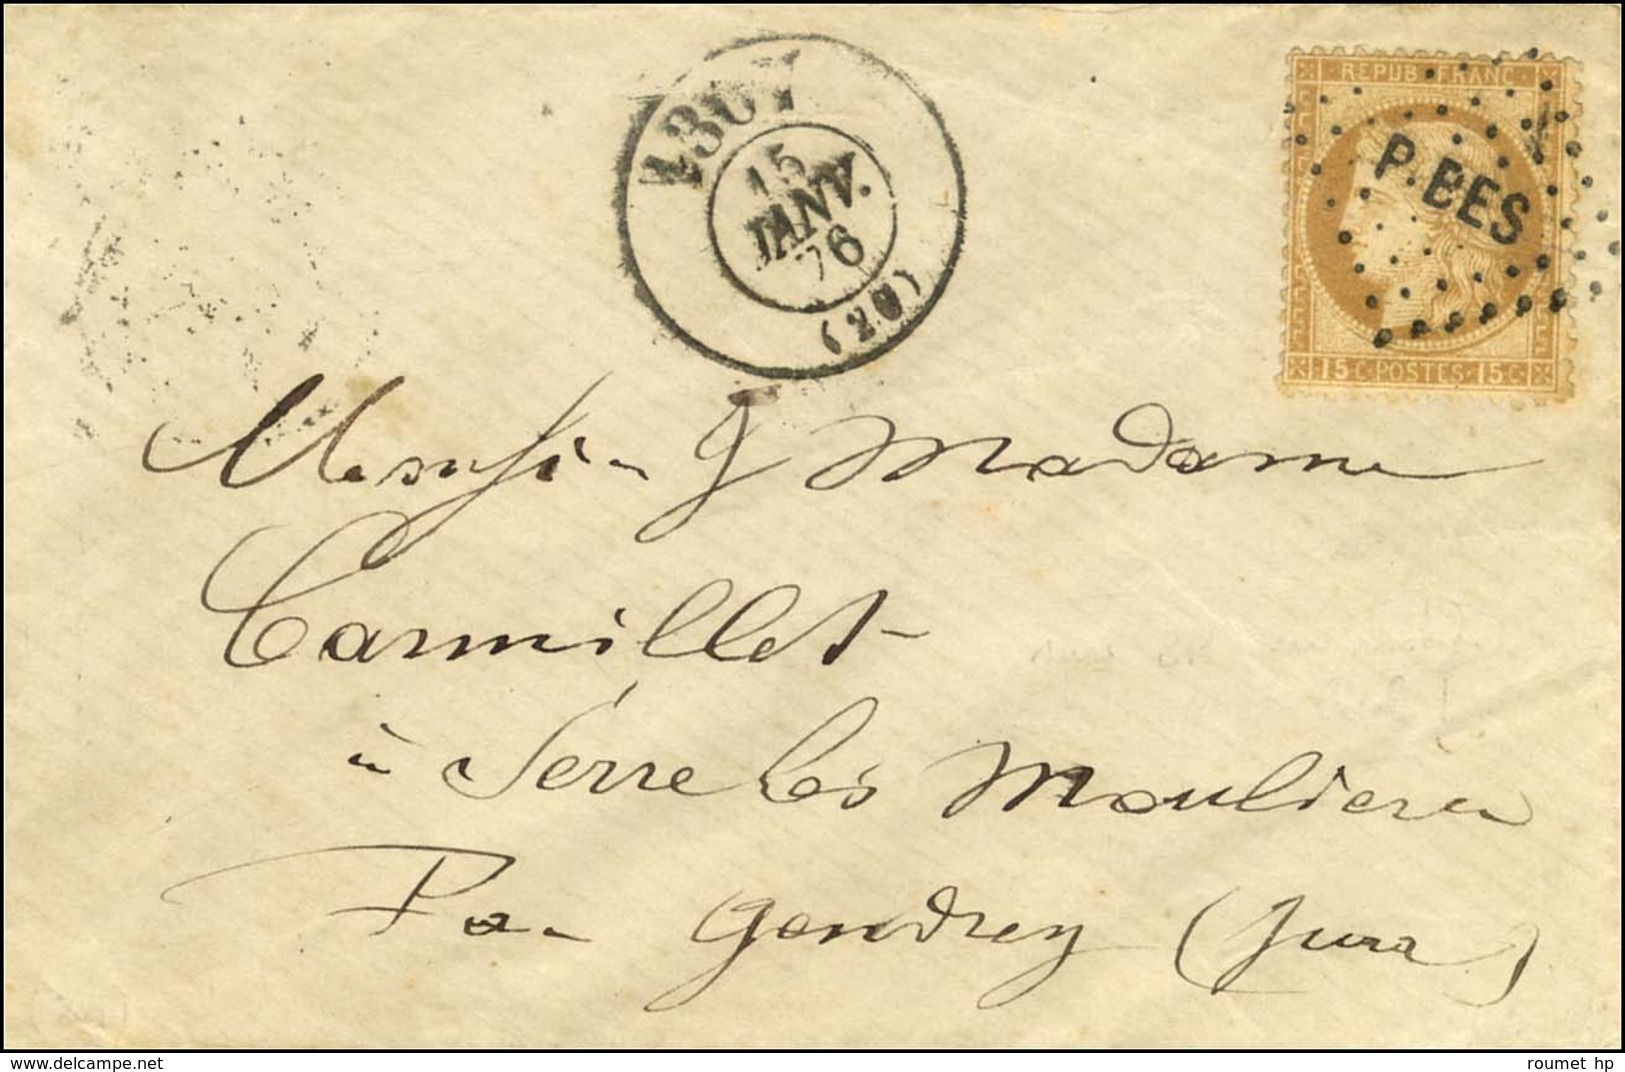 1307
15
JANV.
76
(20)
REPUB · FRANC ·
P.BES
15 C · POSTES · 15 C
Monsieur & Madame
Carmillet
à Serre les Moulieres
Par Gendrey (Jura)
delcampe.net
roumet hp